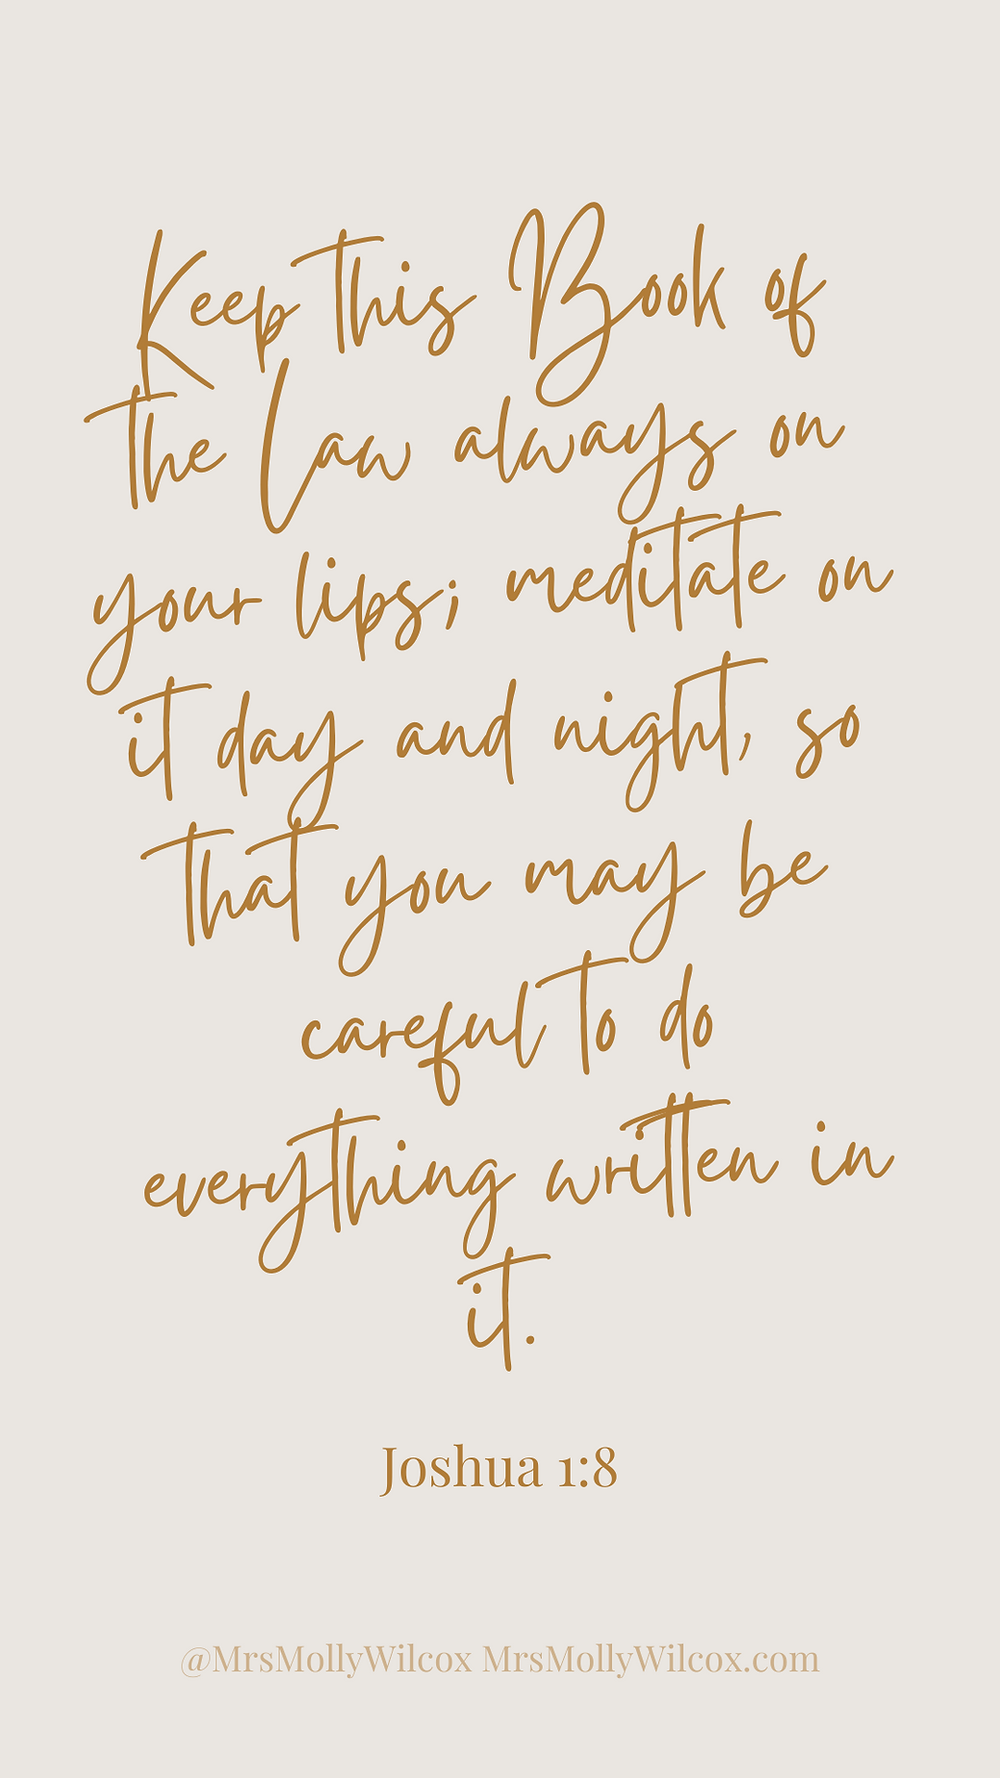 Keep this Book of
the Law always on
your lips; meditate on
it day and night, so
that you may be
careful to do
everything written in
it.
Joshua 1:8
@MrsMollyWilcox MrsMollyWilcox.com